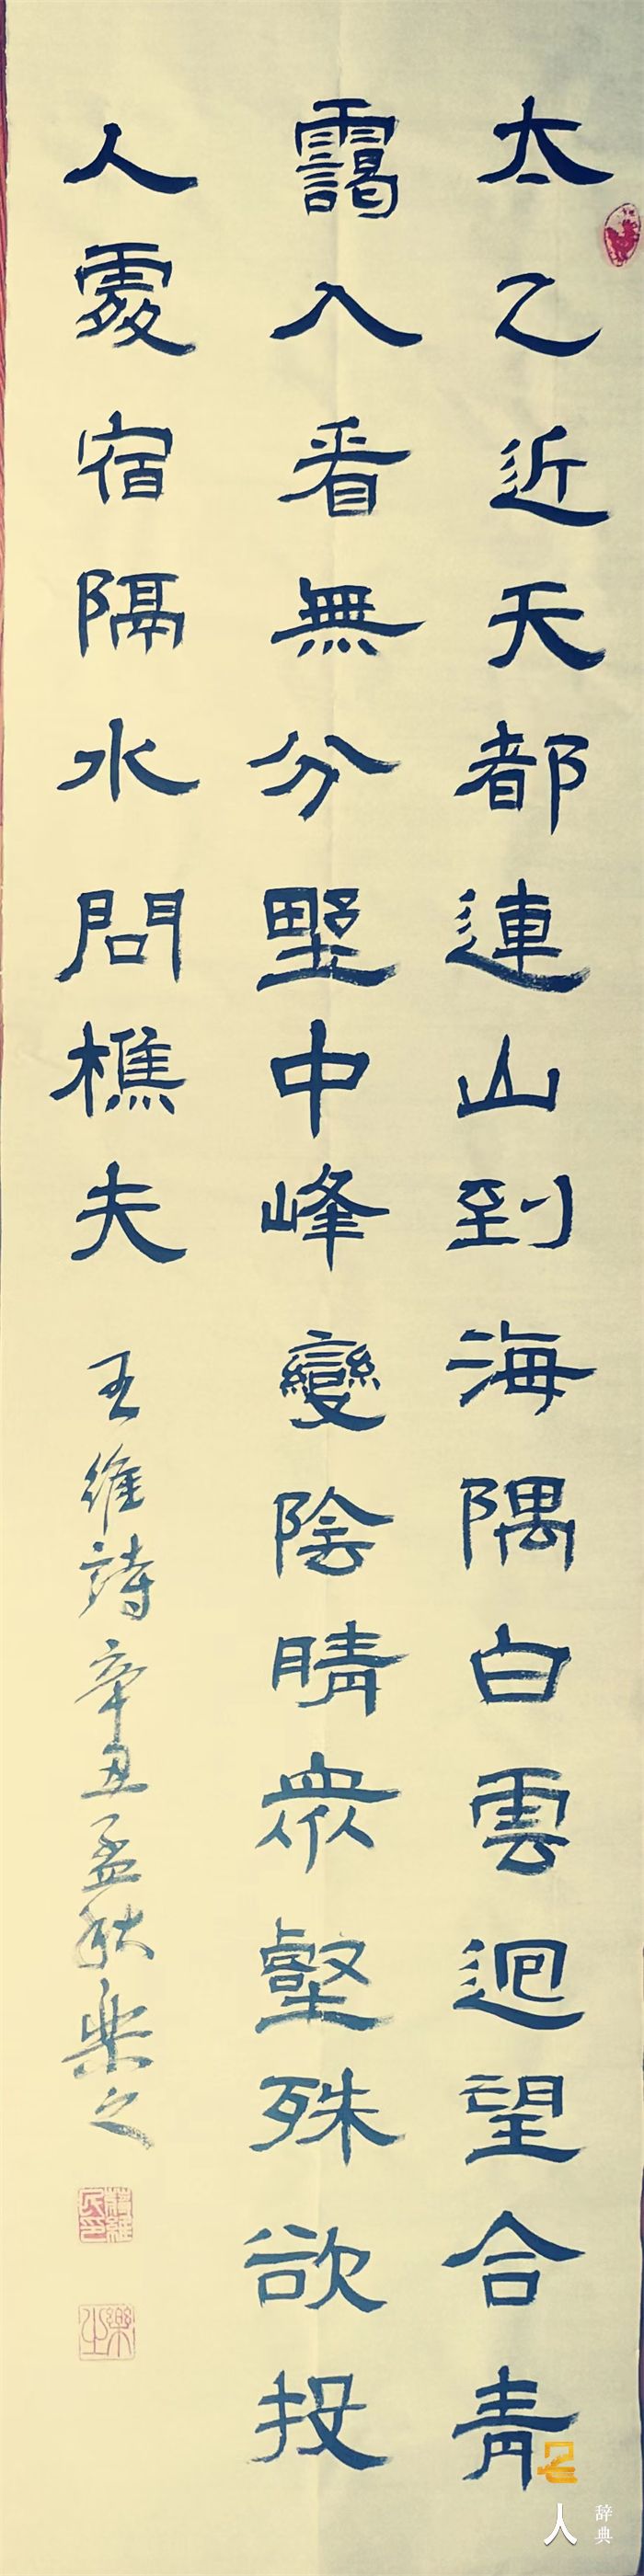 太乙近天都連山到海隅白雲迴望合青
靄入看無分墅中峰變陰晴衆壑殊欲投
人處宿隔水問樵夫
王維詩辛丑孟秋樂之
樂之
名人辞典